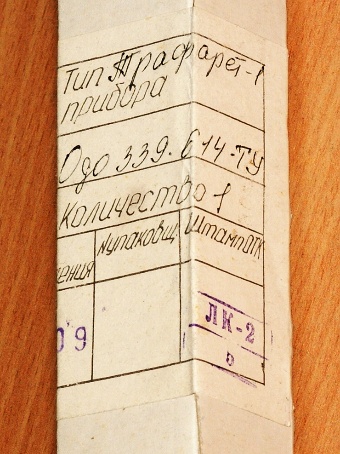 Тип Трафарет-1
прибора
Одо 339.614-ТУ
Количество 1
ения № упаковщ Штамп ОТК
09 ЛК-2